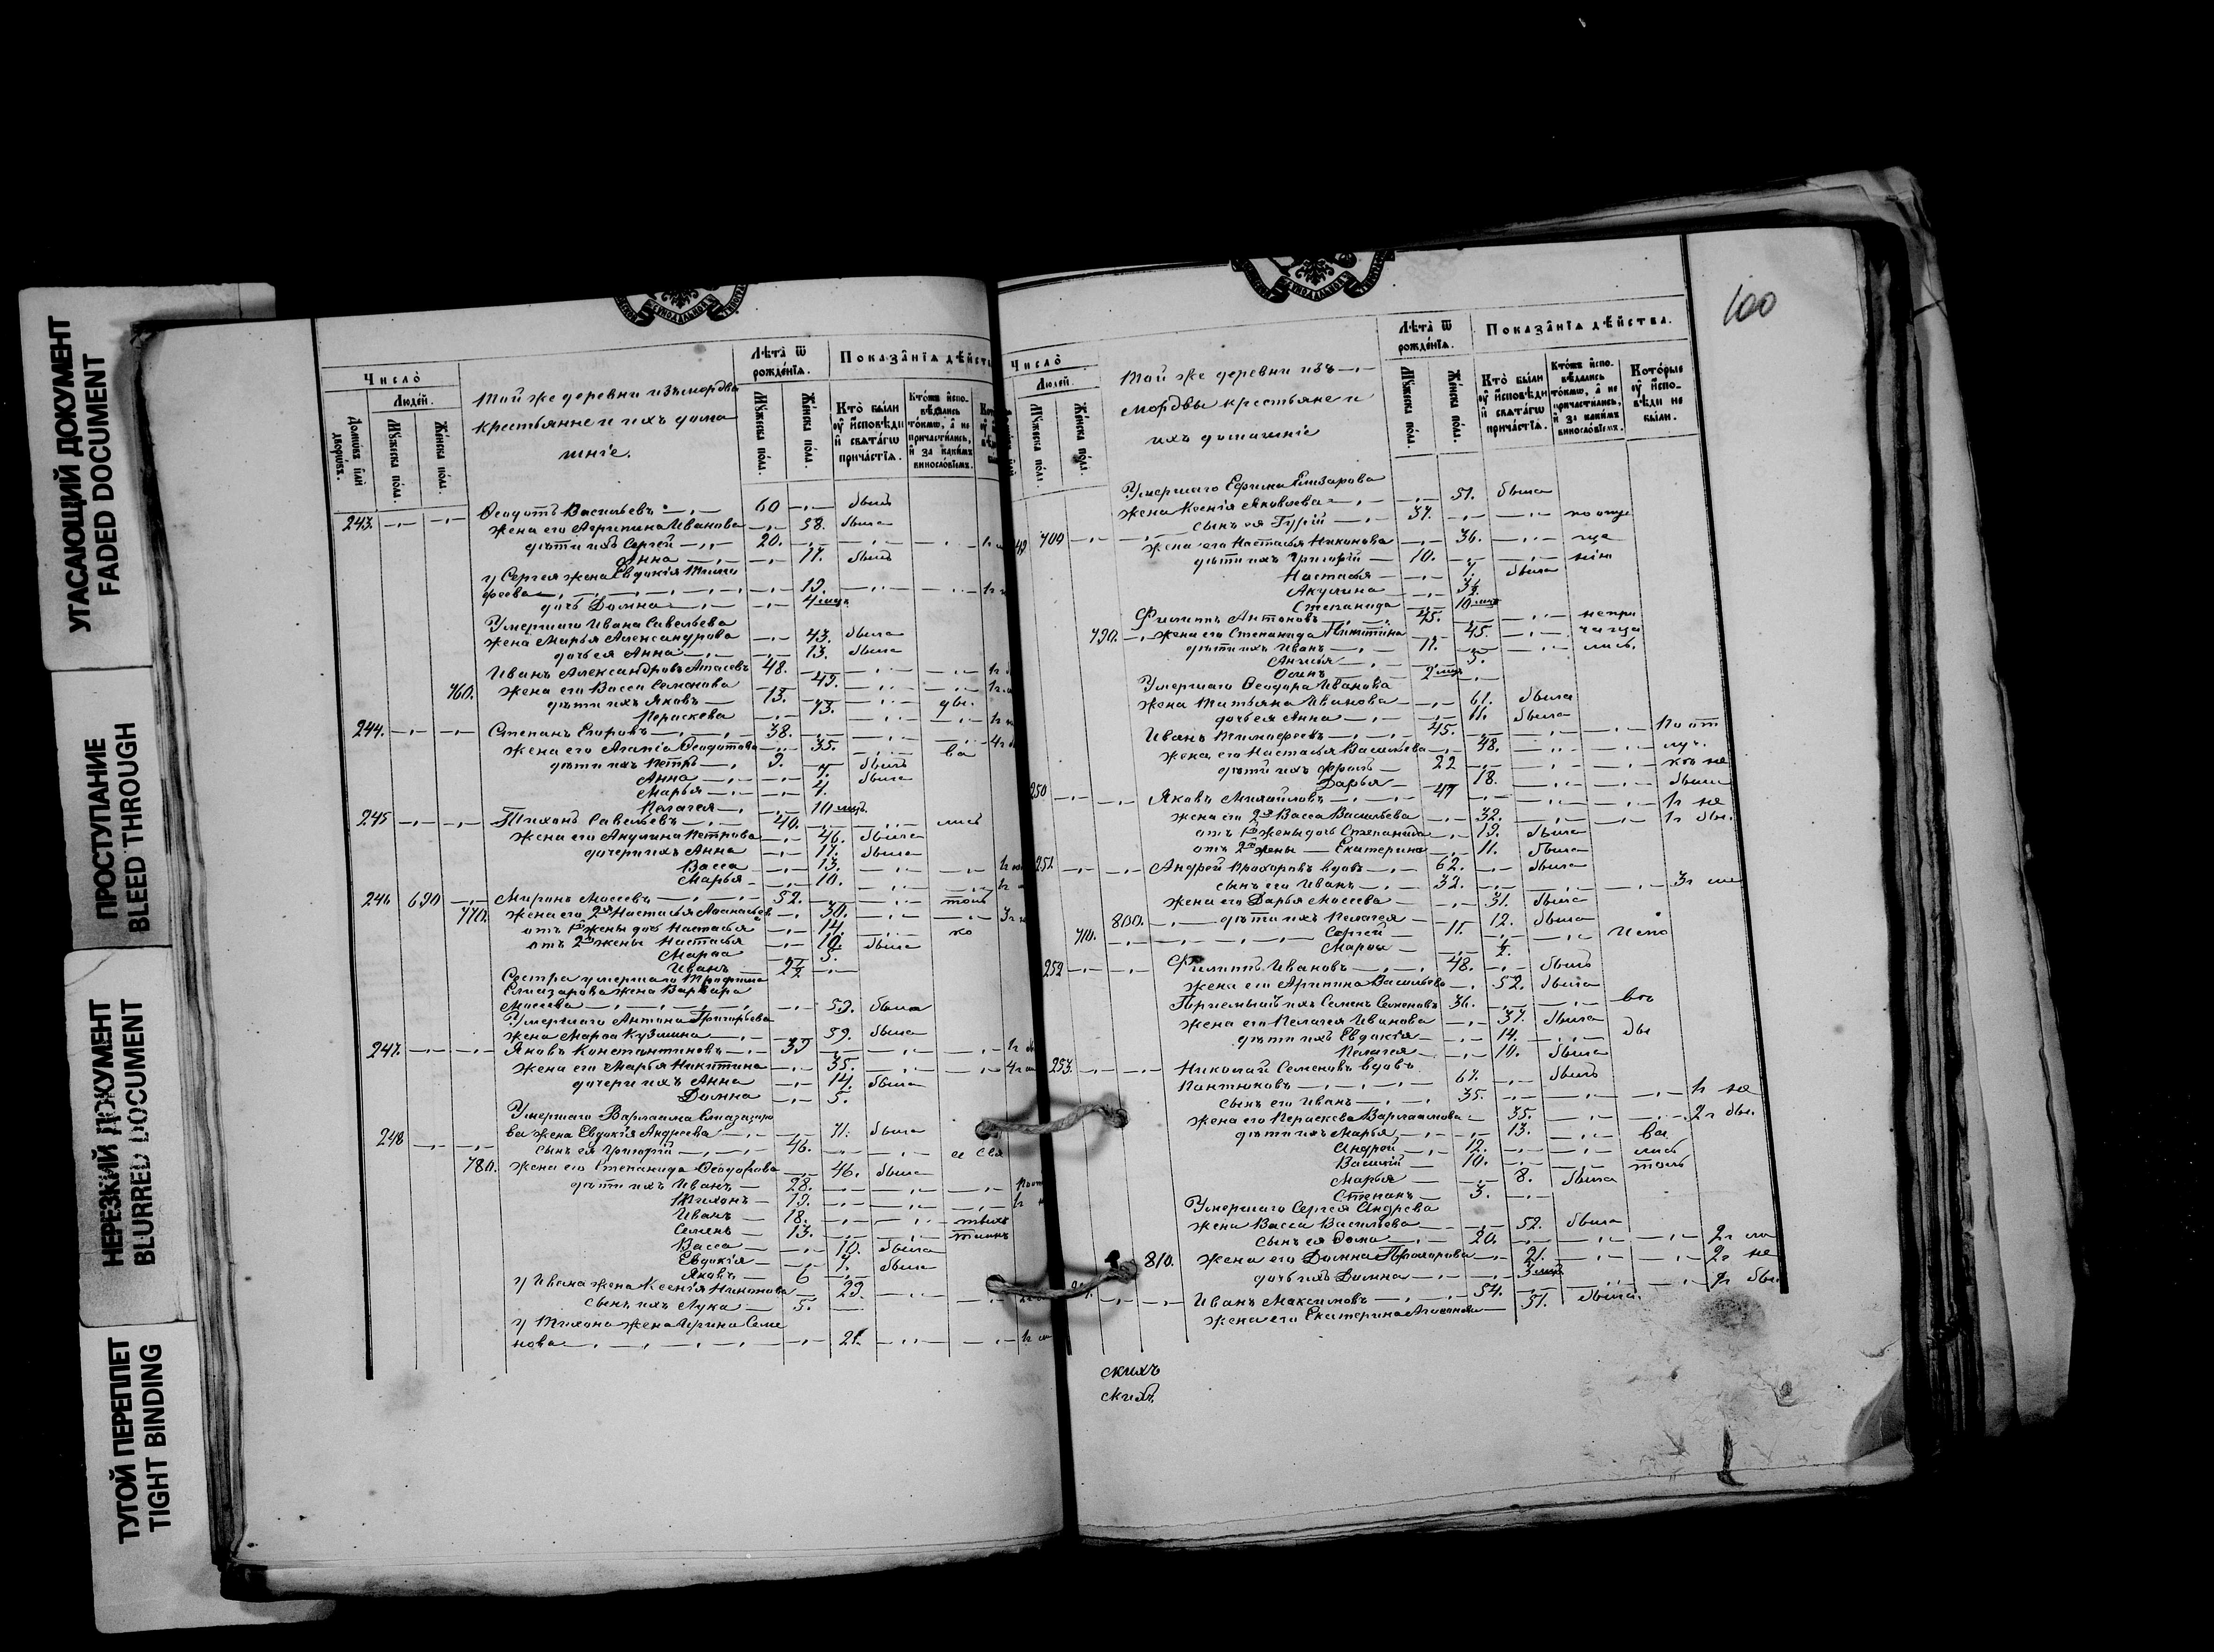 УГАСАЮЩИЙ ДОКУМЕНТ
FADED DOCUMENT
ПРОСТУПАНИЕ
BLEED THROUGH
НЕРЕЗКИЙ ДОКУМЕНТ
BLURRED DOCUMENT
ТУГОЙ ПЕРЕПЛЕТ
TIGHT BINDING
Число̀
Людей.
Домѡвъ или дворѡвъ.
Мꙋжеска пола.
Женска пола.
Той же деревни изъ мордвы
крестьянне и ихъ дома
шніе.
Лѣта ѿ рожденїѧ.
Мꙋжеска пола.
Женска пола.
Показанїѧ дѣйств
Кто были ꙋ исповѣди и свѧтагѡ причастїѧ.
Ктѡжъ испо-
вѣдались
токмѡ, а не
причастились,
и за какимъ
винословїемъ.
243. Ѳеодотъ Васильевъ 60 былъ
жена его Агрипина Иванова 58. была
дѣти ихъ Сергей 20.
Анна 17. былъ
у Сергея жена Евдокія Тимо
феева 19.
дочь Домна 4 мѣс
Умершаго Ивана Савельева
жена Марья Александрова 43. была
дочь ея Анна 13. была
Иванъ Александровъ Атясевъ 48.
760. жена его Васса Семенова 49.
дѣти ихъ Яковъ 13.
Пераскева 13.
244. Степанъ Егоровъ 38.
жена его Агапіа Ѳеодотова 35. ва
дѣти ихъ Петръ 9. былъ
Анна 7. была
Марья 4.
Пелагея 10 мѣс.
245 Тихонъ Савельевъ 40. лись
жена его Акулина Петрова 46. была
дочери ихъ Анна 17. была
Васса 13.
Марья 10.
246 690 Миронъ Моссевъ 52. толь
770. жена его 2я Настасья Аѳанасьев 30.
отъ 1й жены дочь Настасья 14. ко
отъ 2й жены Настасья 10. была
Марѳа 5.
Иванъ 2½
Сестра умершаго Трофима
Елизарова жена Варвара
Моссева 59. была
Умершаго Антона Григорьева
жена Марѳа Кузмина 59. была
247. Яковъ Константиновъ 39
жена его Марья Никитина 35.
дочери ихъ Анна 14. была
Домна 5.
Умершаго Варлаама Елизаро
ва жена Евдокія Андреева 71. была
248 сынъ ея Григорій 46.
780. жена его Степанида Ѳеодорова 46. была
дѣти ихъ Иванъ 28.
Тихонъ 19.
Иванъ 18.
Семенъ 13.
Васса 10. была
Евдокія 7. была
Яковъ 6
у Ивана жена Ксенія Никонова 29.
сынъ ихъ Лука 5.
у Тихона жена Ирина Семе
нова 21.
100
Число̀
Людей.
Мꙋжеска пола.
Женска пола.
Той же деревни изъ
мордвы крестьяне и
ихъ домашніе
Лѣта ѿ рожденїѧ.
Мꙋжеска пола.
Женска пола.
Показанїѧ дѣйства.
Кто были ꙋ исповѣди и свѧтагѡ причастїѧ.
Ктѡжъ испо-
вѣдались
токмѡ, а не
причастились,
и за какимъ
винословїемъ.
Которые ꙋ испо-
вѣди не были.
Умершаго Ефима Елизарова
жена Ксенія Яковлева 51. была
700 сынъ ея Гурій 37.
жена его Настасья Никонова 36.
дѣти ихъ Григорій 10.
Настасья 7. была
Акулина 3½
Степанида 10 мѣс
Филиппъ Антоновъ 45. непри
790. жена его Степанида Никитина 45. чаща
дѣти ихъ Иванъ 11. лись.
Анисья 5.
Осипъ 2 мѣс
Умершаго Ѳеодора Иванова
жена Татьяна Иванова 61. была
дочь ея Анна 11. была
Иванъ Тимофеевъ 45. По от
жена его Настасья Васильева 48. луч.
дѣти ихъ Фролъ 22
Дарья 18. были
250 Яковъ Михайловъ 47 1г не
жена его 2я Васса Васильева 32. 1г бы.
отъ 1й жены дочь Степанида 19. была
отъ 2й жены Екатерина 11. была
251. Андрей Прохоровъ вдовъ 62. была
сынъ его Иванъ 32.
жена его Дарья Моссева 31. была
800. дѣти ихъ Пелагея 12. была
710. Сергей 11.
Марѳа ½.
252 Филиппъ Ивановъ 48. былъ
жена его Агрипина Васильева 52. была
Пріемышъ ихъ Семенъ Семеновъ 36.
жена его Пелагея Иванова 37. была
дѣти ихъ Евдокія 14.
Пелагея 10. была
253. Николай Семеновъ вдовъ
Пантюковъ 67. былъ
сынъ его Иванъ 35. 1г не
жена его Пераскева Варлаамова 35. 2г бы.
дѣти ихъ Марья 13. ва
Андрей 12. лись
Василій 10. толь
Марья 8. была
Степанъ 3.
Умершаго Сергея Андреева
жена Васса Васильева 52. была
сынъ ея Ѳома 20.
810. жена его Домна Прохорова 21. 2г не
дочь ихъ Домна 3 мѣс
Иванъ Максимовъ 54.
жена его Екатерина 51. была.
скихъ
скихъ